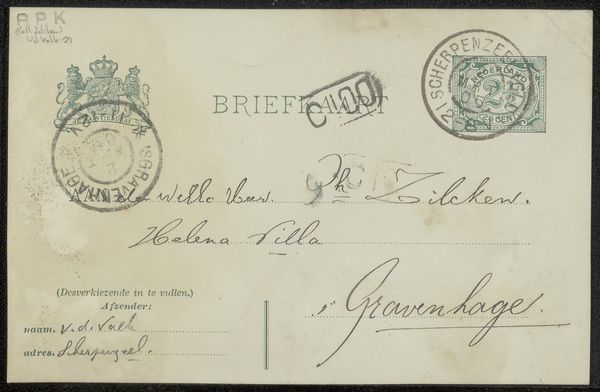 R P K
(Coll Zilcken)
v.d Valk-21
BRIEFKAART
SCHERPENZEEL
NEDERLAND
2½
2½ CENT
C100
'SGRAVENHAGE
AAN den Weled. Heer Ph. Zilcken.
Helena Villa
's Gravenhage.
(Desverkiezende in te vullen.)
Afzender:
naam. v. d. Valk
adres. Scherpenzeel.